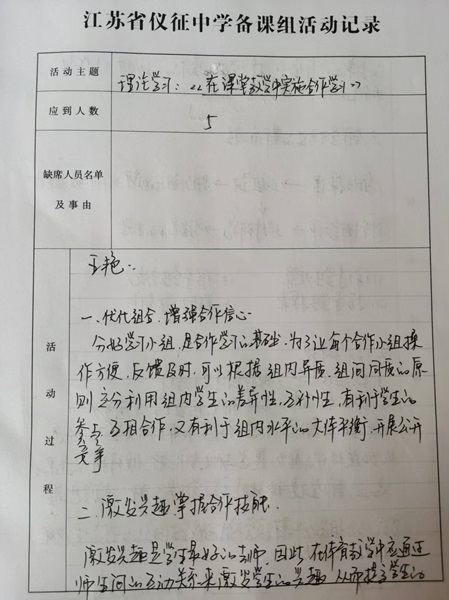 江苏省仪征中学备课组活动记录
活动主题
理论学习：“在课堂教学中实施合作学习”
应到人数
5
缺席人员名单
及事由
活动过程
王艳：
一、优化组合，增强合作信心
分好学习小组，是合作学习的基础。为了让每个合作小组操
作方便，反馈及时，可以根据组内异质、组间同质的原
则，充分利用组内学生的差异性、互补性，有利于学生的
参与、互相合作，又有利于组内水平的大体平衡，开展公开
竞争
二、激发兴趣，掌握合作技能
激发兴趣是学生最好的老师，因此，在体育教学中应通过
师生间的互动关系来激发学生的兴趣，从而提高学生的